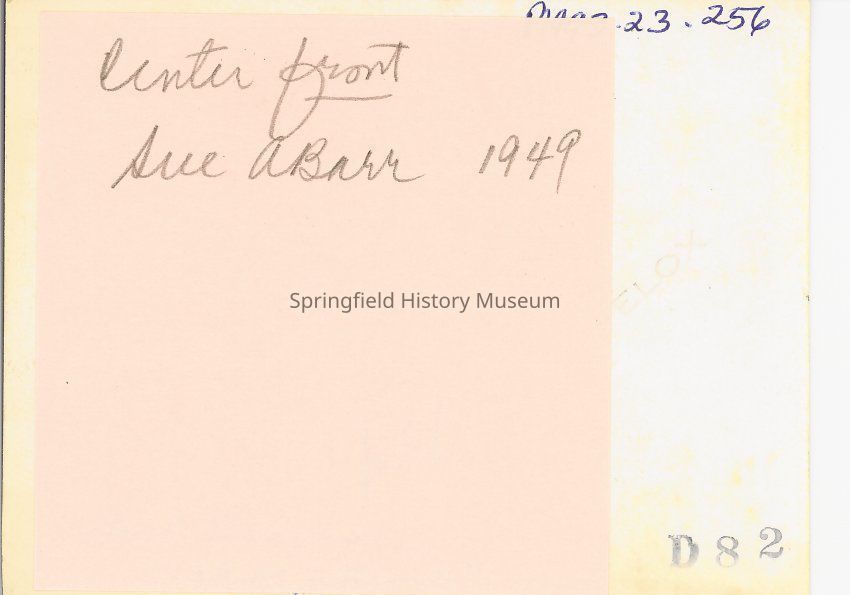 .23.256
Center front
Sue ABarr 1949
ELOX
Springfield History Museum
D82